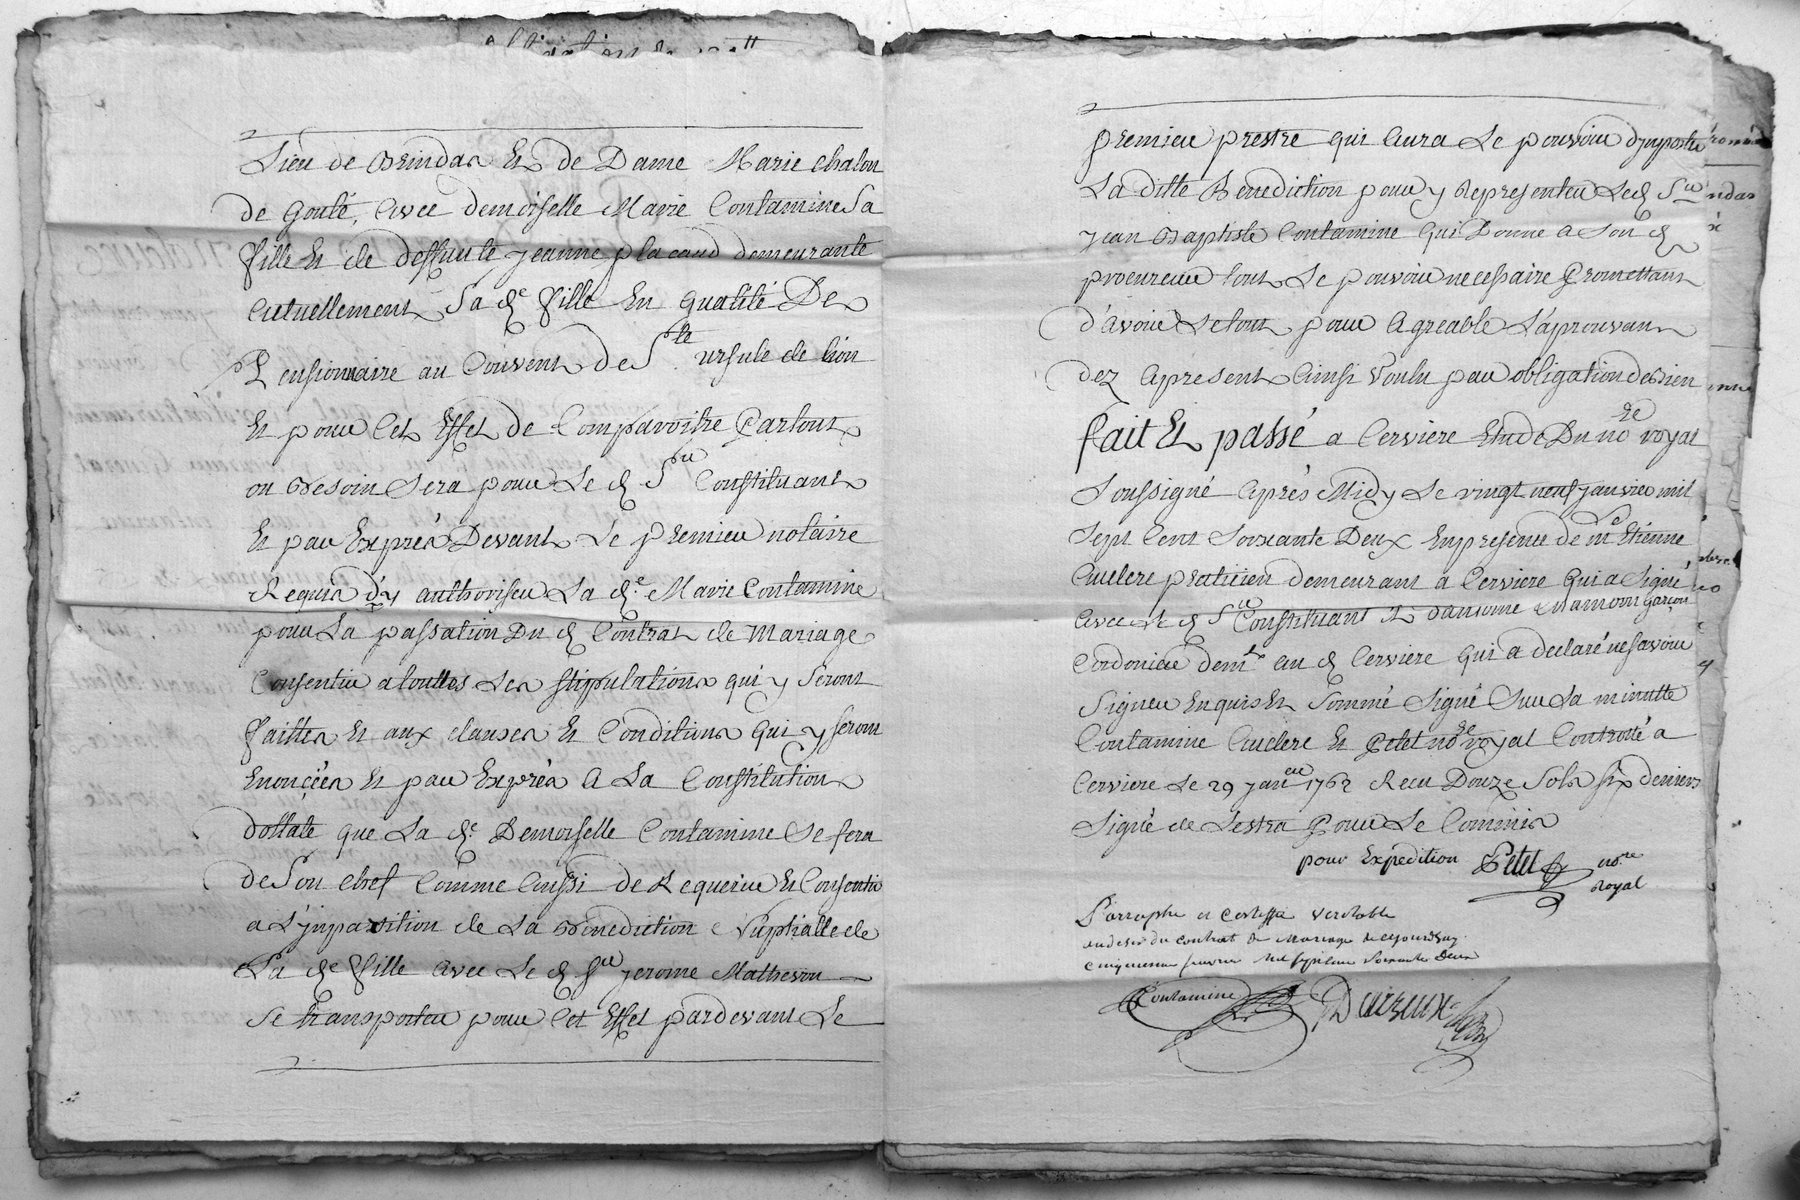 Sieu de Brindas Et de Dame Marie chalon
de Gouté, avec demoiselle Marie Contamine Sa
fille Et de deffunte jeanne placaud demeurante
actuellement Sa de fille En qualité De
Pensionnaire au Couvent de Ste ursule de lion
Et pour Cet Effet de Comparoitre Partout
ou Besoin Sera pour Le d Sr Constituant
Et par Exprès Devant Le premier notaire
Requis d'y authoriser La de Marie Contamine
pour La passation Du d Contrat de Mariage
Consentir a touttes Les stipulations qui y Seront
faittes Et aux clauses Et Conditions qui y seront
Enonçées Et par Exprès a La Constitution
dottale que La de Demoiselle Contamine Se fera
de Son chef Comme aussi de Requerir Et Consentir
a L'jmposition de La Benediction Nuptialle de
La de fille avec Le d Sr jerome Matheron
Se transporter pour Cet Effet pardevant Le
premier prestre qui aura Le pouvoir d'jmposer
La ditte Benediction pour y Representer Led Sr
jean Baptiste Contamine qui Donne a Son d
procureur tout Le pouvoir necessaire Promettant
d'avoir Letout pour Agreable L'aprouvant
dez apresent ainsi Voulu par obligation de Bien
fait Et passé a Cerviere Etude Du nore royal
Soussigné après Midy Le vingt neuf janvier mil
Sept Cent Soixante Deux En presence de me Etienne
auclerc praticien demeurant a Cerviere qui a Signé
avec Le d Sr Constituant Et d'antoine Chamom garçon
Cordonier demt au d Cerviere qui a declaré ne Savoir
Signer Enquis Et Sommé Signé Sur La minutte
Contamine auclerc Et Petet nore royal Controllé a
Cerviere Le 29 janer 1762 Reçu Douze Sols six deniers
Signé de Lestra Pour Le Commis
pour Expedition Petet nore
Royal
Parraphé et Certiffié Veritable
au desir du Contrat de Mariage de cejourdhuy
cinquieme fevrier Mil Septcent Soixante Deux
Contamine